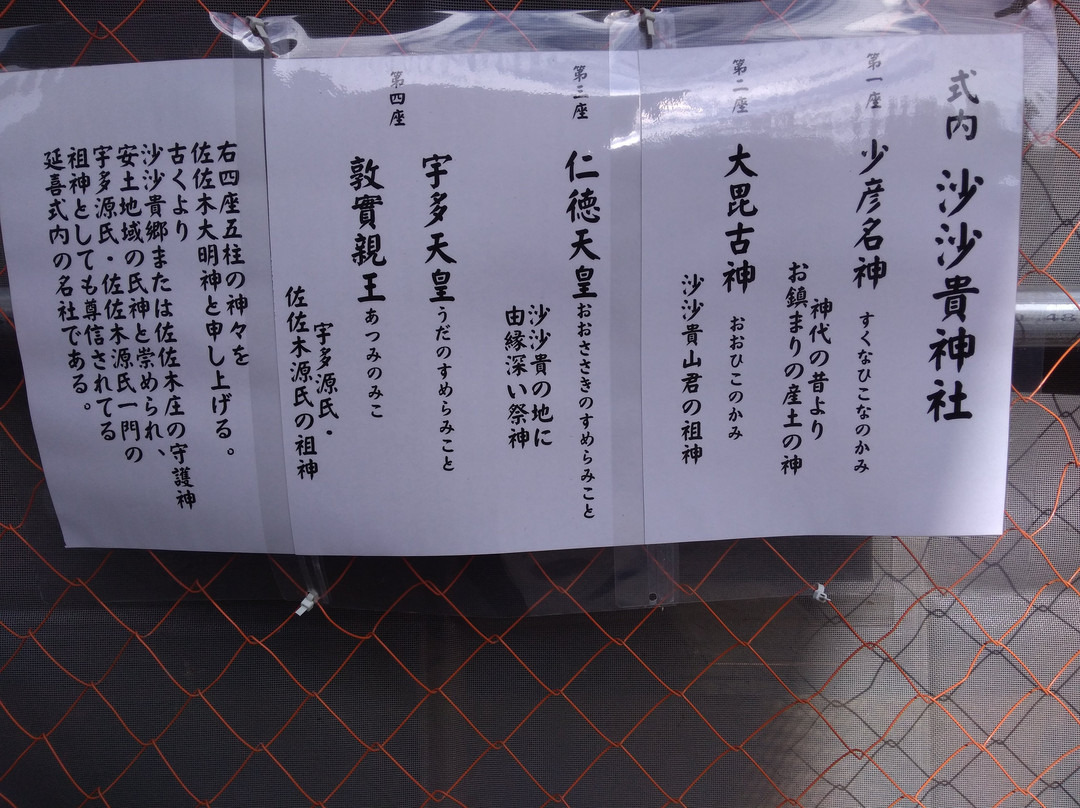 式内 沙沙貴神社
第一座 少彦名神 すくなひこなのかみ
神代の昔より
お鎮まりの産土の神
第二座 大毘古神 おおひこのかみ
沙沙貴山君の祖神
第三座 仁徳天皇 おおささきのすめらみこと
沙沙貴の地に
由縁深い祭神
第四座
宇多天皇 うだのすめらみこと
敦實親王 あつみのみこ
宇多源氏・
佐佐木源氏の祖神
右四座五柱の神々を
佐佐木大明神と申し上げる。
古くより
沙沙貴郷または佐佐木庄の守護神
安土地域の氏神と崇められ、
宇多源氏・佐佐木源氏一門の
祖神としても尊信されてる
延喜式内の名社である。